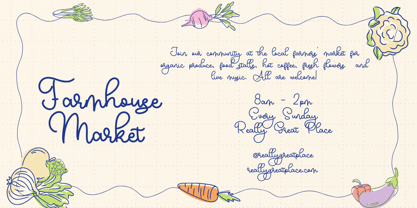 Farmhouse
Market
Join our community at the local farmers' market for
organic produce, food stalls, hot coffee, fresh flowers and
live music. All are welcome!
8am - 2pm
Every Sunday
Really Great Place
@reallygreatplace
reallygreatplace.com